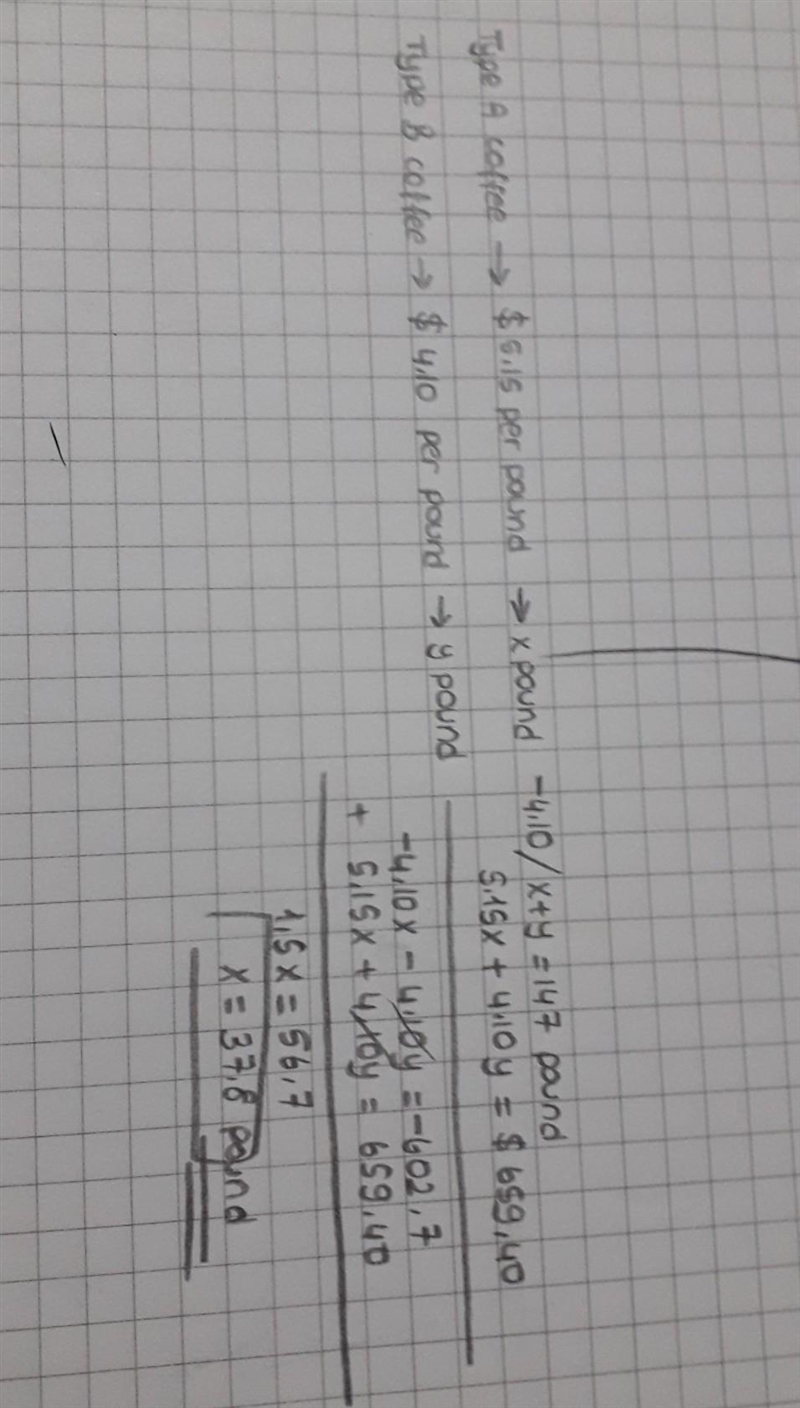 Type A coffee → $ 5,15 per pound → x pound
Type B coffee → $ 4,10 per pound → y pound
-4,10/ x+y = 147 pound
5,15x + 4,10y = $ 659,40
-4,10x - 4,10y = -602,7
+ 5,15x + 4,10y = 659,40
1,5x = 56,7
x = 37,8 pound